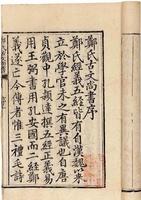 鄭氏古文尚書序
鄭氏經義五經皆有自漢魏以來
立於學官未之有異議也自唐
貞觀中孔穎達撰五經正義易
用王弼書用孔安國而二經鄭
義遂亡今傳者惟三禮毛詩